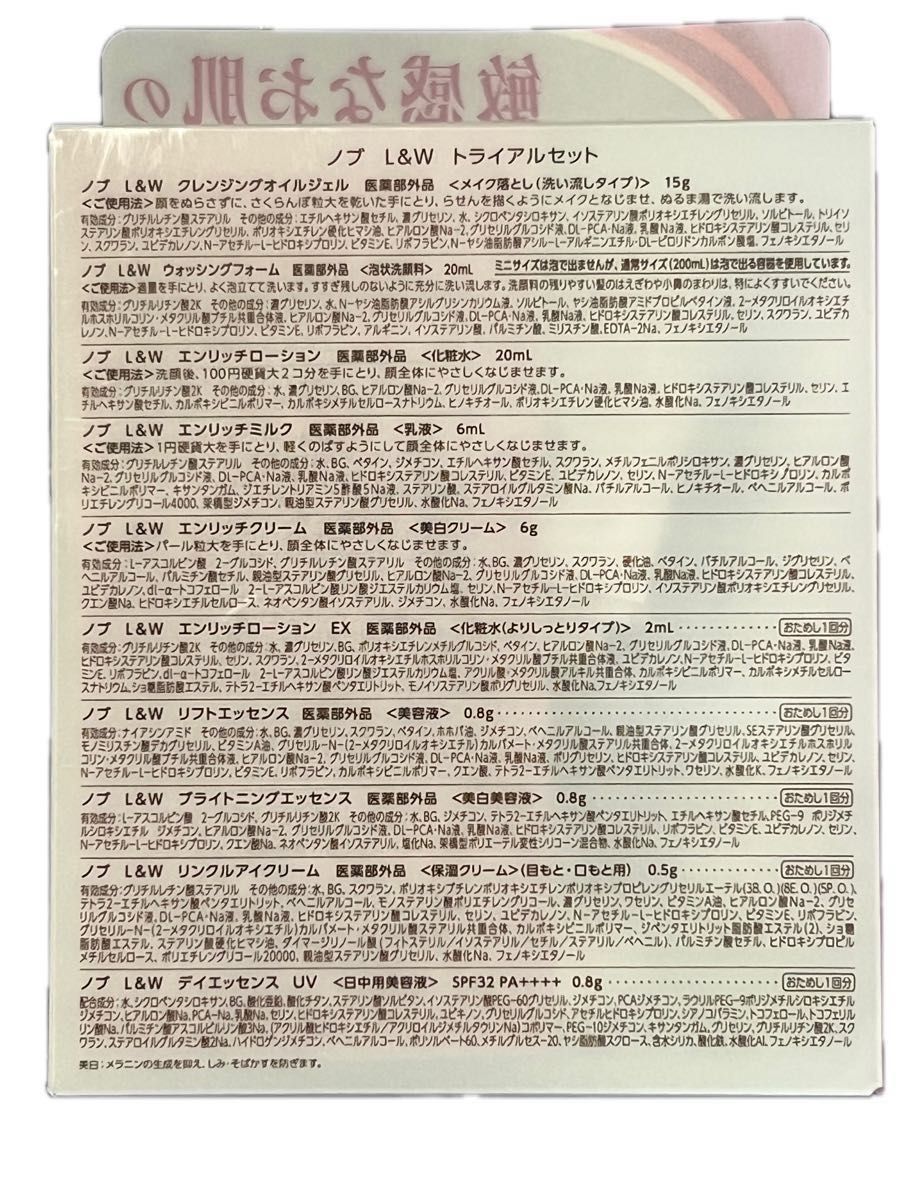 敏感なお肌の
ノブ L&W トライアルセット
ノブ L&W クレンジングオイルジェル 医薬部外品 <メイク落とし(洗い流しタイプ)> 15g
<ご使用法>顔をぬらさずに、さくらんぼ粒大を乾いた手にとり、らせんを描くようにメイクとなじませ、ぬるま湯で洗い流します。
有効成分:グリチルレチン酸ステアリル その他の成分:エチルヘキサン酸セチル、濃グリセリン、水、シクロペンタシロキサン、イソステアリン酸ポリオキシエチレングリセリル、ソルビトール、トリイソ
ステアリン酸ポリオキシエチレングリセリル、ポリオキシエチレン硬化ヒマシ油、ヒアルロン酸Na-2、グリセリルグルコシド液、DL-PCA・Na液、乳酸Na液、ヒドロキシステアリン酸コレステリル、セリ
ン、スクワラン、ユビデカレノン、N-アセチル-L-ヒドロキシプロリン、ビタミンE、リボフラビン、N-ヤシ油脂肪酸アシル-L-アルギニンエチル・DL-ピロリドンカルボン酸塩、フェノキシエタノール
ノブ L&W ウォッシングフォーム 医薬部外品 <泡状洗顔料> 20mL ミニサイズは泡で出ませんが、通常サイズ(200mL)は泡で出る容器を使用しています。
<ご使用法>適量を手にとり、よく泡立てて洗います。すすぎ残しのないように充分に洗い流します。洗顔料の残りやすい髪のはえぎわや小鼻のまわりは、特によくすすいでください。
有効成分:グリチルリチン酸2K その他の成分:濃グリセリン、水、N-ヤシ油脂肪酸アシルグリシンカリウム液、ソルビトール、ヤシ油脂肪酸アミドプロピルベタイン液、2-メタクリロイルオキシエチ
ルホスホリルコリン・メタクリル酸ブチル共重合体液、ヒアルロン酸Na-2、グリセリルグルコシド液、DL-PCA・Na液、乳酸Na液、ヒドロキシステアリン酸コレステリル、セリン、スクワラン、ユビデカ
レノン、N-アセチル-L-ヒドロキシプロリン、ビタミンE、リボフラビン、アルギニン、イソステアリン酸、パルミチン酸、ミリスチン酸、EDTA-2Na、フェノキシエタノール
ノブ L&W エンリッチローション 医薬部外品 <化粧水> 20mL
<ご使用法>洗顔後、100円硬貨大2コ分を手にとり、顔全体にやさしくなじませます。
有効成分:グリチルリチン酸2K その他の成分:水、濃グリセリン、BG、ヒアルロン酸Na-2、グリセリルグルコシド液、DL-PCA・Na液、乳酸Na液、ヒドロキシステアリン酸コレステリル、セリン、エ
チルヘキサン酸セチル、カルボキシビニルポリマー、カルボキシメチルセルロースナトリウム、ヒノキチオール、ポリオキシエチレン硬化ヒマシ油、水酸化Na、フェノキシエタノール
ノブ L&W エンリッチミルク 医薬部外品 <乳液> 6mL
<ご使用法>1円硬貨大を手にとり、軽くのばすようにして顔全体にやさしくなじませます。
有効成分:グリチルレチン酸ステアリル その他の成分:水、BG、ベタイン、ジメチコン、エチルヘキサン酸セチル、スクワラン、メチルフェニルポリシロキサン、濃グリセリン、ヒアルロン酸
Na-2、グリセリルグルコシド液、DL-PCA・Na液、乳酸Na液、ヒドロキシステアリン酸コレステリル、ビタミンE、ユビデカレノン、セリン、N-アセチル-L-ヒドロキシプロリン、カルボ
キシビニルポリマー、キサンタンガム、ジエチレントリアミン5酢酸5Na液、ステアリン酸、ステアロイルグルタミン酸Na、バチルアルコール、ヒノキチオール、ベヘニルアルコール、ポ
リエチレングリコール4000、架橋型ジメチコン、親油型ステアリン酸グリセリル、水酸化Na、フェノキシエタノール
ノブ L&W エンリッチクリーム 医薬部外品 <美白クリーム> 6g
<ご使用法>パール粒大を手にとり、顔全体にやさしくなじませます。
有効成分:L-アスコルビン酸 2-グルコシド、グリチルレチン酸ステアリル その他の成分:水、BG、濃グリセリン、スクワラン、硬化油、ベタイン、バチルアルコール、ジグリセリン、ベ
ヘニルアルコール、パルミチン酸セチル、親油型ステアリン酸グリセリル、ヒアルロン酸Na-2、グリセリルグルコシド液、DL-PCA・Na液、乳酸Na液、ヒドロキシステアリン酸コレステリル、
ユビデカレノン、dl-α-トコフェロール 2-L-アスコルビン酸リン酸ジエステルカリウム塩、セリン、N-アセチル-L-ヒドロキシプロリン、イソステアリン酸ポリオキシエチレングリセリル、
クエン酸Na、ヒドロキシエチルセルロース、ネオペンタン酸イソステアリル、ジメチコン、水酸化Na、フェノキシエタノール
ノブ L&W エンリッチローション EX 医薬部外品 <化粧水(よりしっとりタイプ)> 2mL ············ おためし1回分
有効成分:グリチルリチン酸2K その他の成分:水、濃グリセリン、BG、ポリオキシエチレンメチルグルコシド、ベタイン、ヒアルロン酸Na-2、グリセリルグルコシド液、DL-PCA・Na液、乳酸Na液、
ヒドロキシステアリン酸コレステリル、セリン、スクワラン、2-メタクリロイルオキシエチルホスホリルコリン・メタクリル酸ブチル共重合体液、ユビデカレノン、N-アセチル-L-ヒドロキシプロリン、ビタ
ミンE、リボフラビン、dl-α-トコフェロール 2-L-アスコルビン酸リン酸ジエステルカリウム塩、アクリル酸・メタクリル酸アルキル共重合体、カルボキシビニルポリマー、カルボキシメチルセルロー
スナトリウム、ショ糖脂肪酸エステル、テトラ2-エチルヘキサン酸ペンタエリトリット、モノイソステアリン酸ポリグリセリル、水酸化Na、フェノキシエタノール
ノブ L&W リフトエッセンス 医薬部外品 <美容液> 0.8g ············ おためし1回分
有効成分:ナイアシンアミド その他の成分:水、BG、濃グリセリン、スクワラン、ベタイン、ホホバ油、ジメチコン、ベヘニルアルコール、親油型ステアリン酸グリセリル、SEステアリン酸グリセリル、
モノミリスチン酸デカグリセリル、ビタミンA油、グリセリル-N-(2-メタクリロイルオキシエチル)カルバメート・メタクリル酸ステアリル共重合体、2-メタクリロイルオキシエチルホスホリル
コリン・メタクリル酸ブチル共重合体液、ヒアルロン酸Na-2、グリセリルグルコシド液、DL-PCA・Na液、乳酸Na液、ポリグリセリン、ヒドロキシステアリン酸コレステリル、ユビデカレノン、セリン、
N-アセチル-L-ヒドロキシプロリン、ビタミンE、リボフラビン、カルボキシビニルポリマー、クエン酸、テトラ2-エチルヘキサン酸ペンタエリトリット、ワセリン、水酸化K、フェノキシエタノール
ノブ L&W ブライトニングエッセンス 医薬部外品 <美白美容液> 0.8g ············ おためし1回分
有効成分:L-アスコルビン酸 2-グルコシド、グリチルリチン酸2K その他の成分:水、BG、ジメチコン、テトラ2-エチルヘキサン酸ペンタエリトリット、エチルヘキサン酸セチル、PEG-9 ポリジメチ
ルシロキシエチル ジメチコン、ヒアルロン酸Na-2、グリセリルグルコシド液、DL-PCA・Na液、乳酸Na液、ヒドロキシステアリン酸コレステリル、リボフラビン、ビタミンE、ユビデカレノン、セリン、
N-アセチル-L-ヒドロキシプロリン、クエン酸Na、ネオペンタン酸イソステアリル、塩化Na、架橋型ポリエーテル変性シリコーン混合物、水酸化Na、フェノキシエタノール
ノブ L&W リンクルアイクリーム 医薬部外品 <保湿クリーム>(目もと・口もと用) 0.5g ············ おためし1回分
有効成分:グリチルレチン酸ステアリル その他の成分:水、BG、スクワラン、ポリオキシブチレンポリオキシエチレンポリオキシプロピレングリセリルエーテル(3B.O.)(8E.O.)(5P.O.)、
テトラ2-エチルヘキサン酸ペンタエリトリット、ベヘニルアルコール、モノステアリン酸ポリエチレングリコール、濃グリセリン、ワセリン、ビタミンA油、ヒアルロン酸Na-2、グリセ
リルグルコシド液、DL-PCA・Na液、乳酸Na液、ヒドロキシステアリン酸コレステリル、セリン、ユビデカレノン、N-アセチル-L-ヒドロキシプロリン、ビタミンE、リボフラビン、
グリセリル-N-(2-メタクリロイルオキシエチル)カルバメート・メタクリル酸ステアリル共重合体、カルボキシビニルポリマー、ジペンタエリトリット脂肪酸エステル(2)、ショ糖
脂肪酸エステル、ステアリン酸硬化ヒマシ油、ダイマージリノール酸(フィトステリル/イソステアリル/セチル/ステアリル/ベヘニル)、パルミチン酸セチル、ヒドロキシプロピル
メチルセルロース、ポリエチレングリコール20000、親油型ステアリン酸グリセリル、水酸化Na、フェノキシエタノール
ノブ L&W デイエッセンス UV <日中用美容液> SPF32 PA++++ 0.8g ············ おためし1回分
配合成分:水、シクロペンタシロキサン、BG、酸化亜鉛、酸化チタン、ステアリン酸ソルビタン、イソステアリン酸PEG-60グリセリル、ジメチコン、PCAジメチコン、ラウリルPEG-9ポリジメチルシロキシエチル
ジメチコン、ヒアルロン酸Na、PCA-Na、乳酸Na、セリン、ヒドロキシステアリン酸コレステリル、ユビキノン、グリセリルグルコシド、アセチルヒドロキシプロリン、シアノコバラミン、トコフェロール、トコフェリル
リン酸Na、パルミチン酸アスコルビルリン酸3Na、(アクリル酸ヒドロキシエチル/アクリロイルジメチルタウリンNa)コポリマー、PEG-10ジメチコン、キサンタンガム、グリセリン、グリチルリチン酸2K、スク
ワラン、ステアロイルグルタミン酸2Na、ハイドロゲンジメチコン、ベヘニルアルコール、ポリソルベート60、メチルグルセス-20、ヤシ脂肪酸スクロース、含水シリカ、酸化鉄、水酸化Al、フェノキシエタノール
美白:メラニンの生成を抑え、しみ・そばかすを防ぎます。